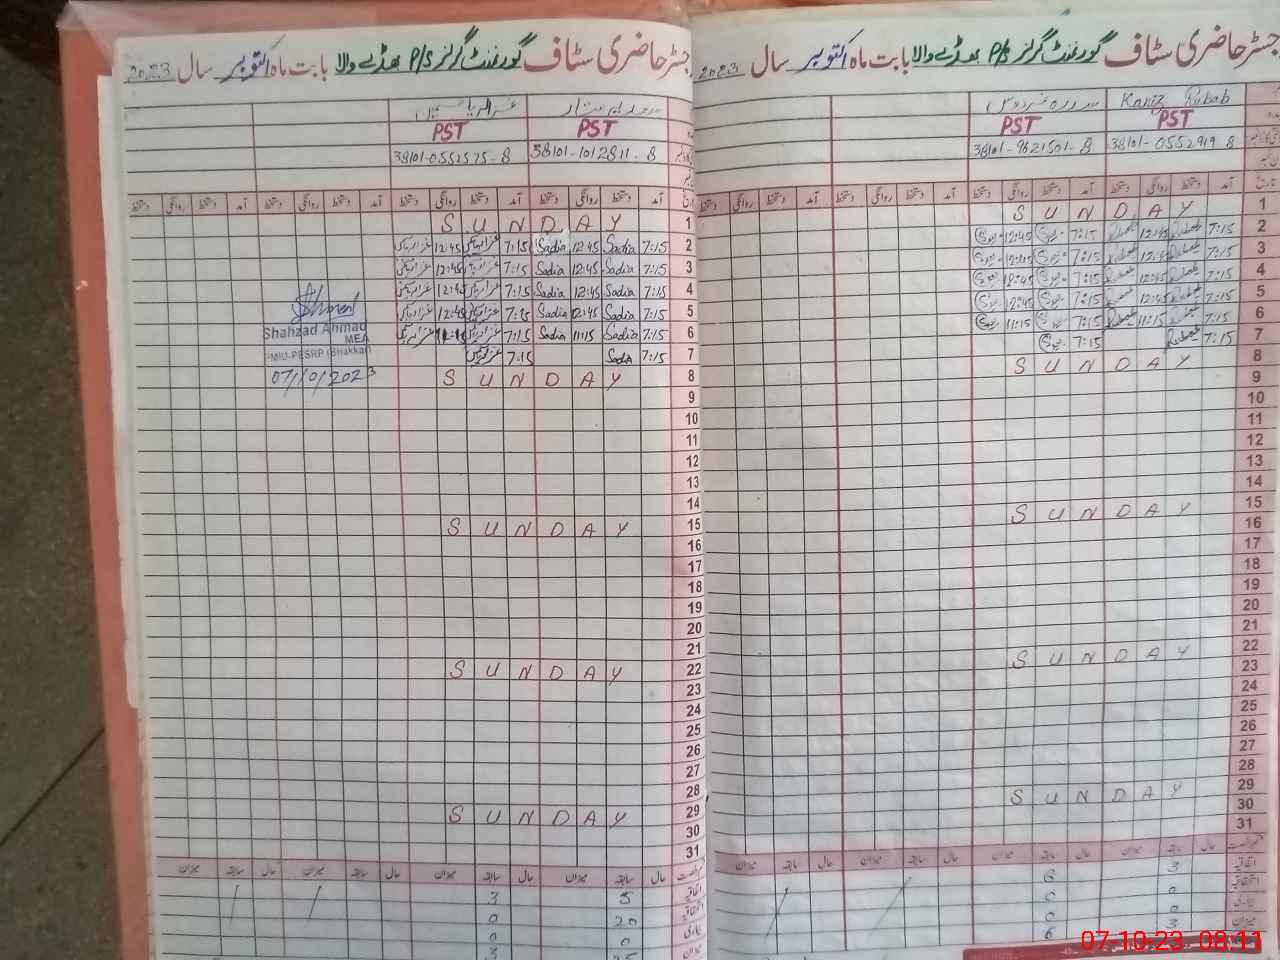 رجسٹر حاضری سٹاف گورنمنٹ گرلز P/S بھڈے والا بابت ماہ اکتوبر سال 2023
PST PST
38101-0552575-8 38101-1012811-8
دستخط روانگی دستخط آمد دستخط روانگی دستخط آمد دستخط روانگی دستخط آمد دستخط روانگی دستخط آمد تاریخ
S U N D A Y 1
12:45 7:15 Sadia 12:45 Sadia 7:15 2
12:45 7:15 Sadia 12:45 Sadia 7:15 3
12:45 7:15 Sadia 12:45 Sadia 7:15 4
12:45 7:15 Sadia 12:45 Sadia 7:15 5
11:15 7:15 Sadia 11:15 Sadia 7:15 6
7:15 Sadia 7:15 7
S U N D A Y 8
9
10
11
12
13
14
S U N D A Y 15
16
17
18
19
20
21
S U N D A Y 22
23
24
25
26
27
28
S U N D A Y 29
30
31
میزان سابقہ حال میزان سابقہ حال میزان سابقہ حال میزان سابقہ حال
3 5 اتفاقیہ
0 20
0 0 بیماری
3 25 میزان
Shahzad Ahmad
MEA
PMIU-PESRP (Bhakkar)
07/10/2023
رجسٹر حاضری سٹاف گورنمنٹ گرلز P/S بھڈے والا بابت ماہ اکتوبر سال 2023
سدرہ فردوس Kaniz Rubab
PST PST
38101-9621501-8 38101-0552919 8
دستخط روانگی دستخط آمد دستخط روانگی دستخط آمد دستخط روانگی دستخط آمد دستخط روانگی دستخط آمد تاریخ
S U N D A Y 1
12:45 7:15 12:45 7:15 2
12:45 7:15 12:45 7:15 3
12:45 7:15 12:45 7:15 4
12:45 7:15 12:45 7:15 5
11:15 7:15 11:15 7:15 6
7:15 7:15 7
S U N D A Y 8
9
10
11
12
13
14
S U N D A Y 15
16
17
18
19
20
21
S U N D A Y 22
23
24
25
26
27
28
S U N D A Y 29
30
31
میزان سابقہ حال میزان سابقہ حال میزان سابقہ حال میزان سابقہ حال
6 3 اتفاقیہ
0 0
0 0 بیماری
6 3 میزان
07-10-23 08:11